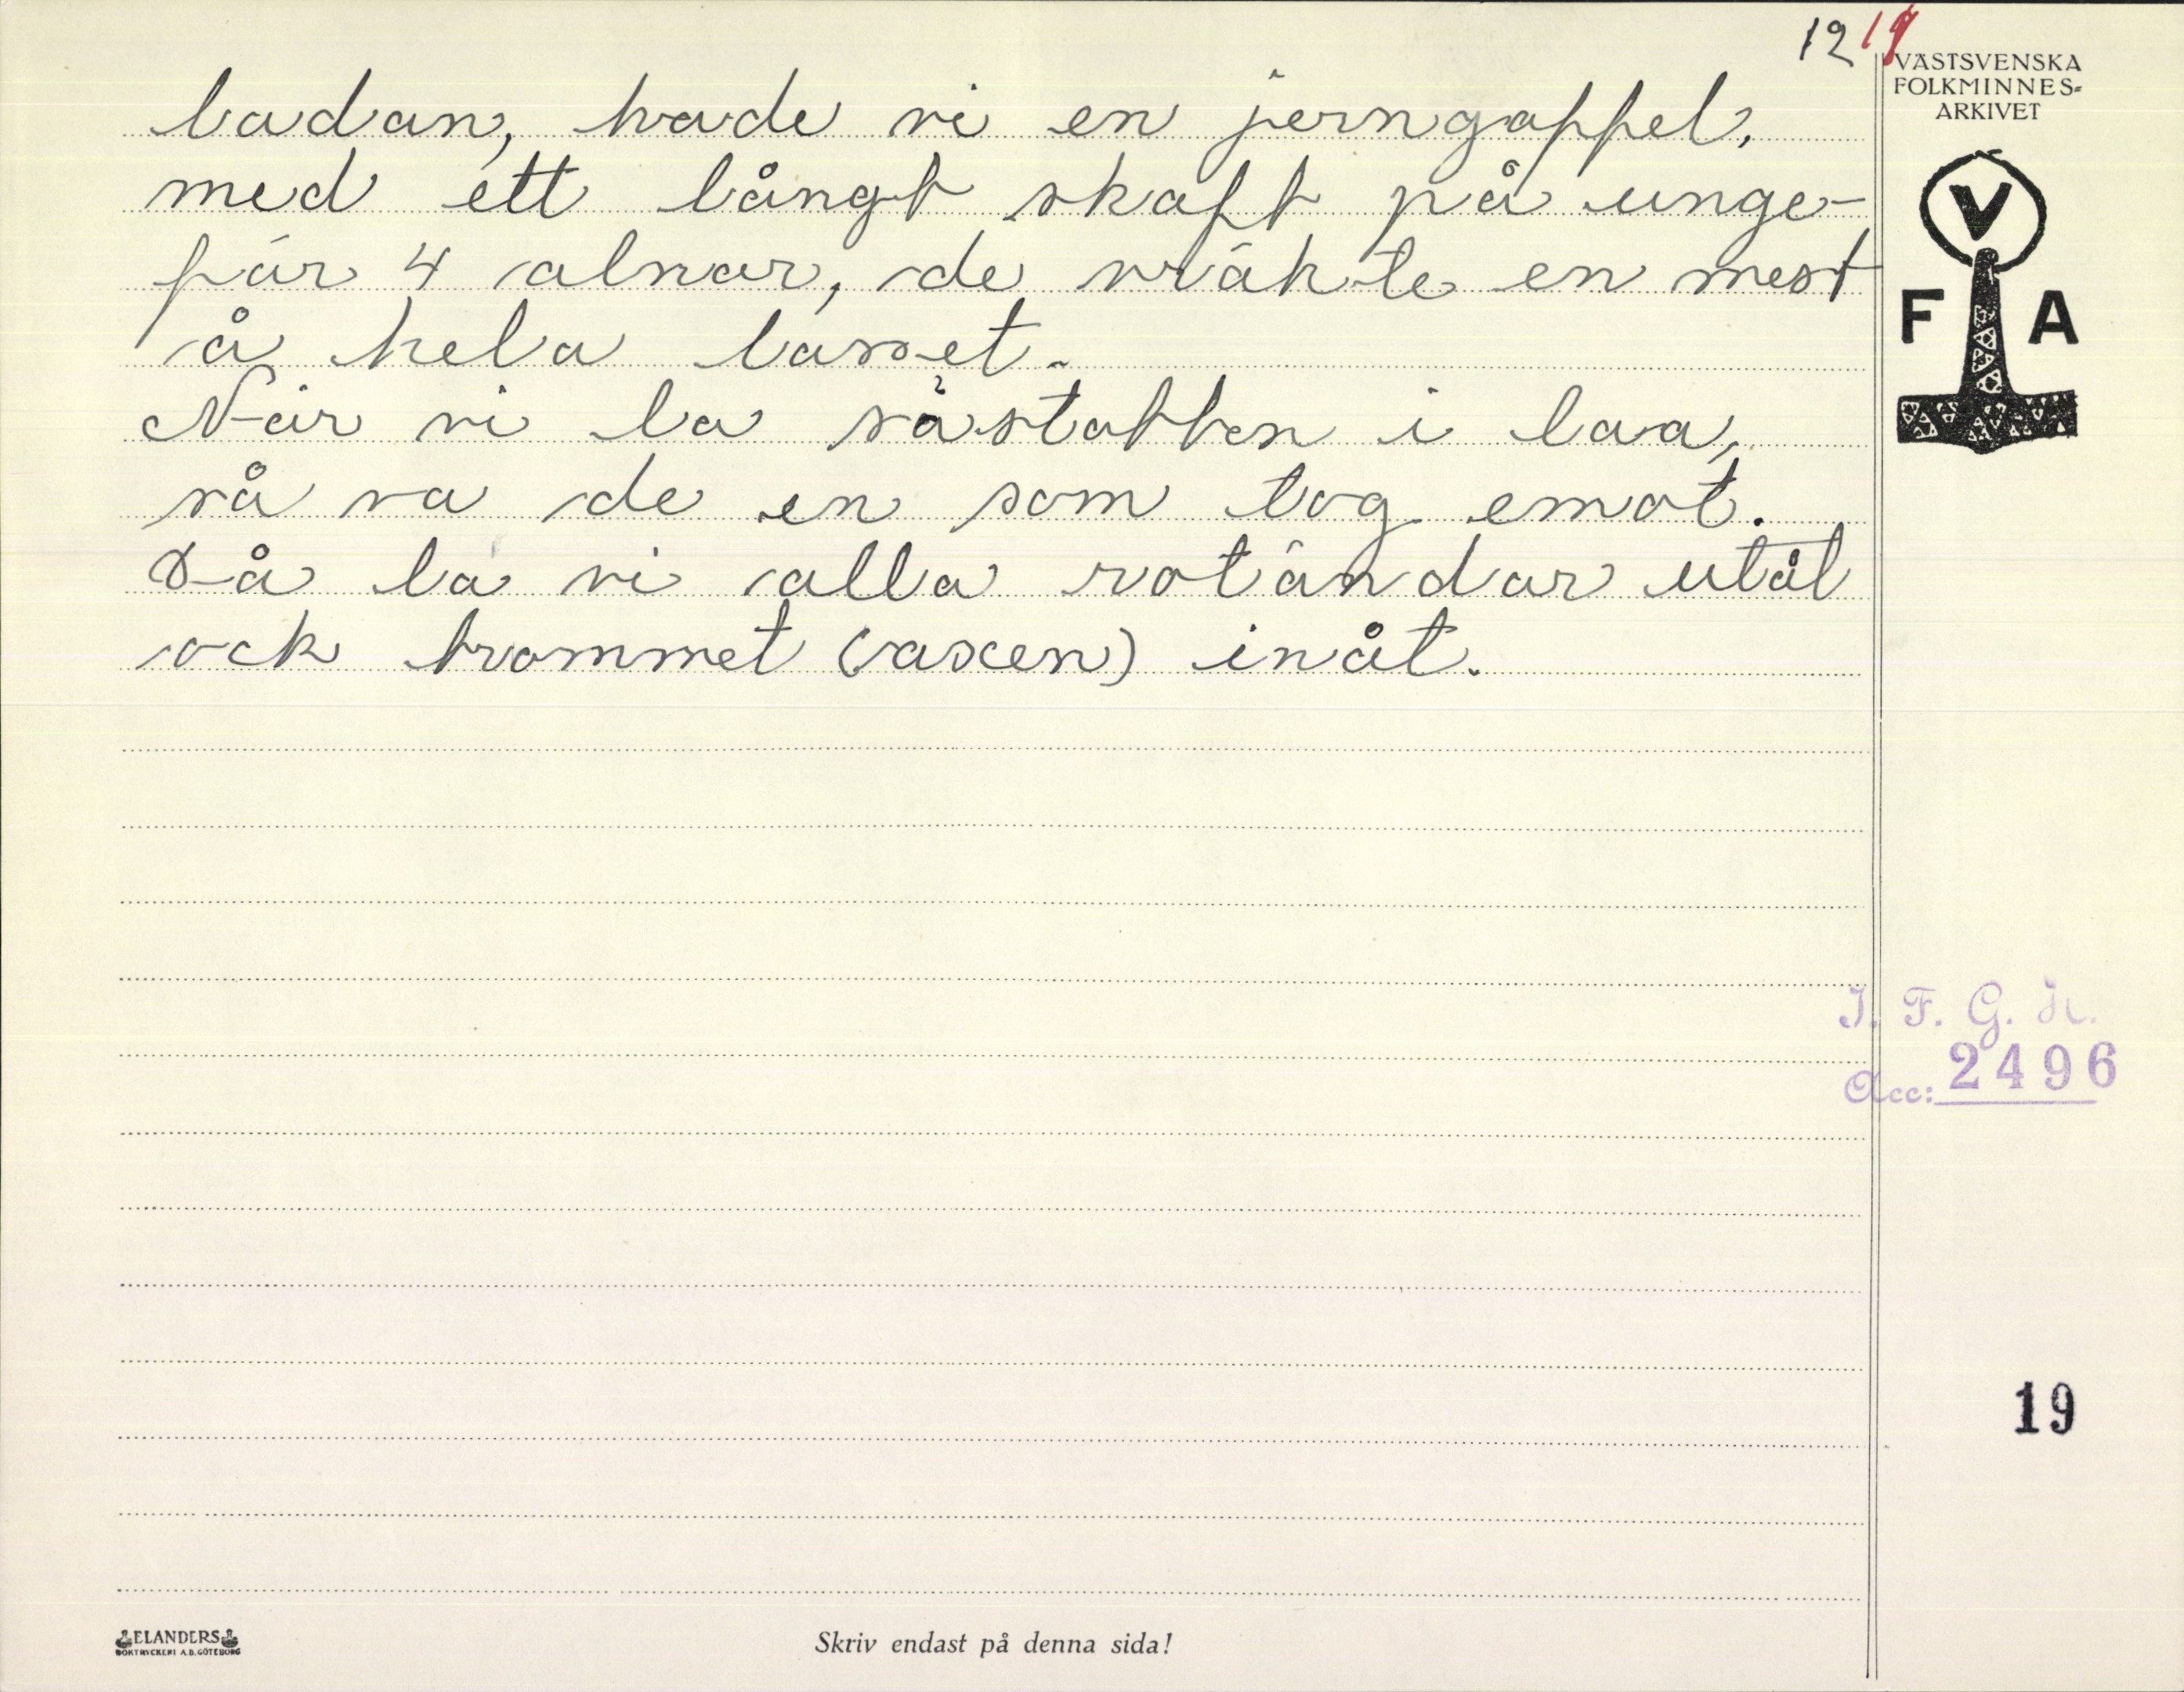 12 19
VÄSTSVENSKA
FOLKMINNES=
ARKIVET
V
F A
ladan, hade vi en jerngaffel,
med ett långt skaft på unge-
fär 4 alnar, de vräkte en mest
å hela lasset.
När vi la i laa,
så va de en som tog emot.
Då la vi alla rotändar utåt
ock trommet (axen) inåt.
I. F. G. H.
Acc: 2496
19
ELANDERS
BOKTRYCKERI A.B. GÖTEBORG
Skriv endast på denna sida!